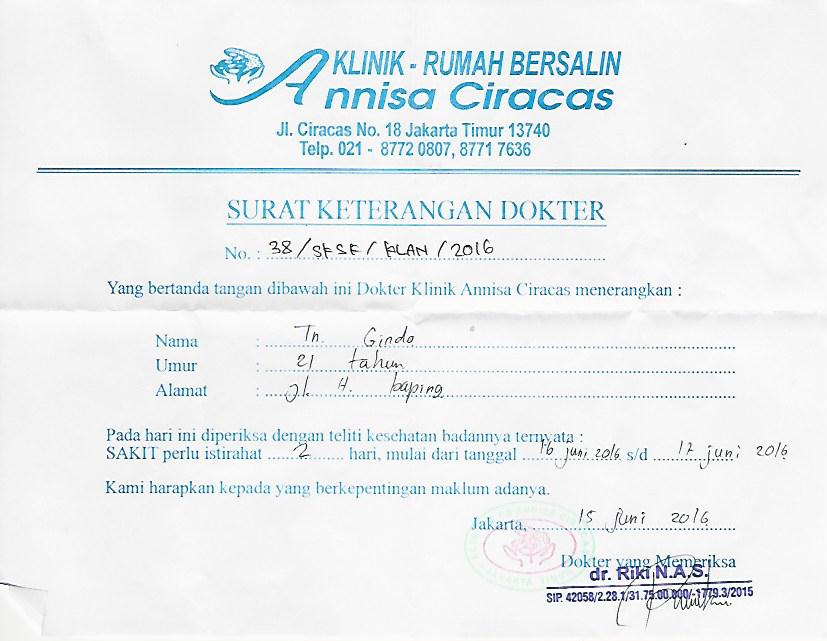 KLINIK - RUMAH BERSALIN
Annisa Ciracas
Jl. Ciracas No. 18 Jakarta Timur 13740
Telp. 021 - 8772 0807, 8771 7636
SURAT KETERANGAN DOKTER
No. : 38/SKSK/KLAN/2016
Yang bertanda tangan dibawah ini Dokter Klinik Annisa Ciracas menerangkan :
Nama : Tn. Gindo
Umur : 21 tahun
Alamat : Jl. H. baping
Pada hari ini diperiksa dengan teliti kesehatan badannya ternyata :
SAKIT perlu istirahat 2 hari, mulai dari tanggal 16 juni 2016 s/d 17 juni 2016
Kami harapkan kepada yang berkepentingan maklum adanya.
Jakarta, 15 juni 2016
Dokter yang Memeriksa
dr. Riki N.A.S.
SIP. 42058/2.28.1/31.75.00.000/-1779.3/2015